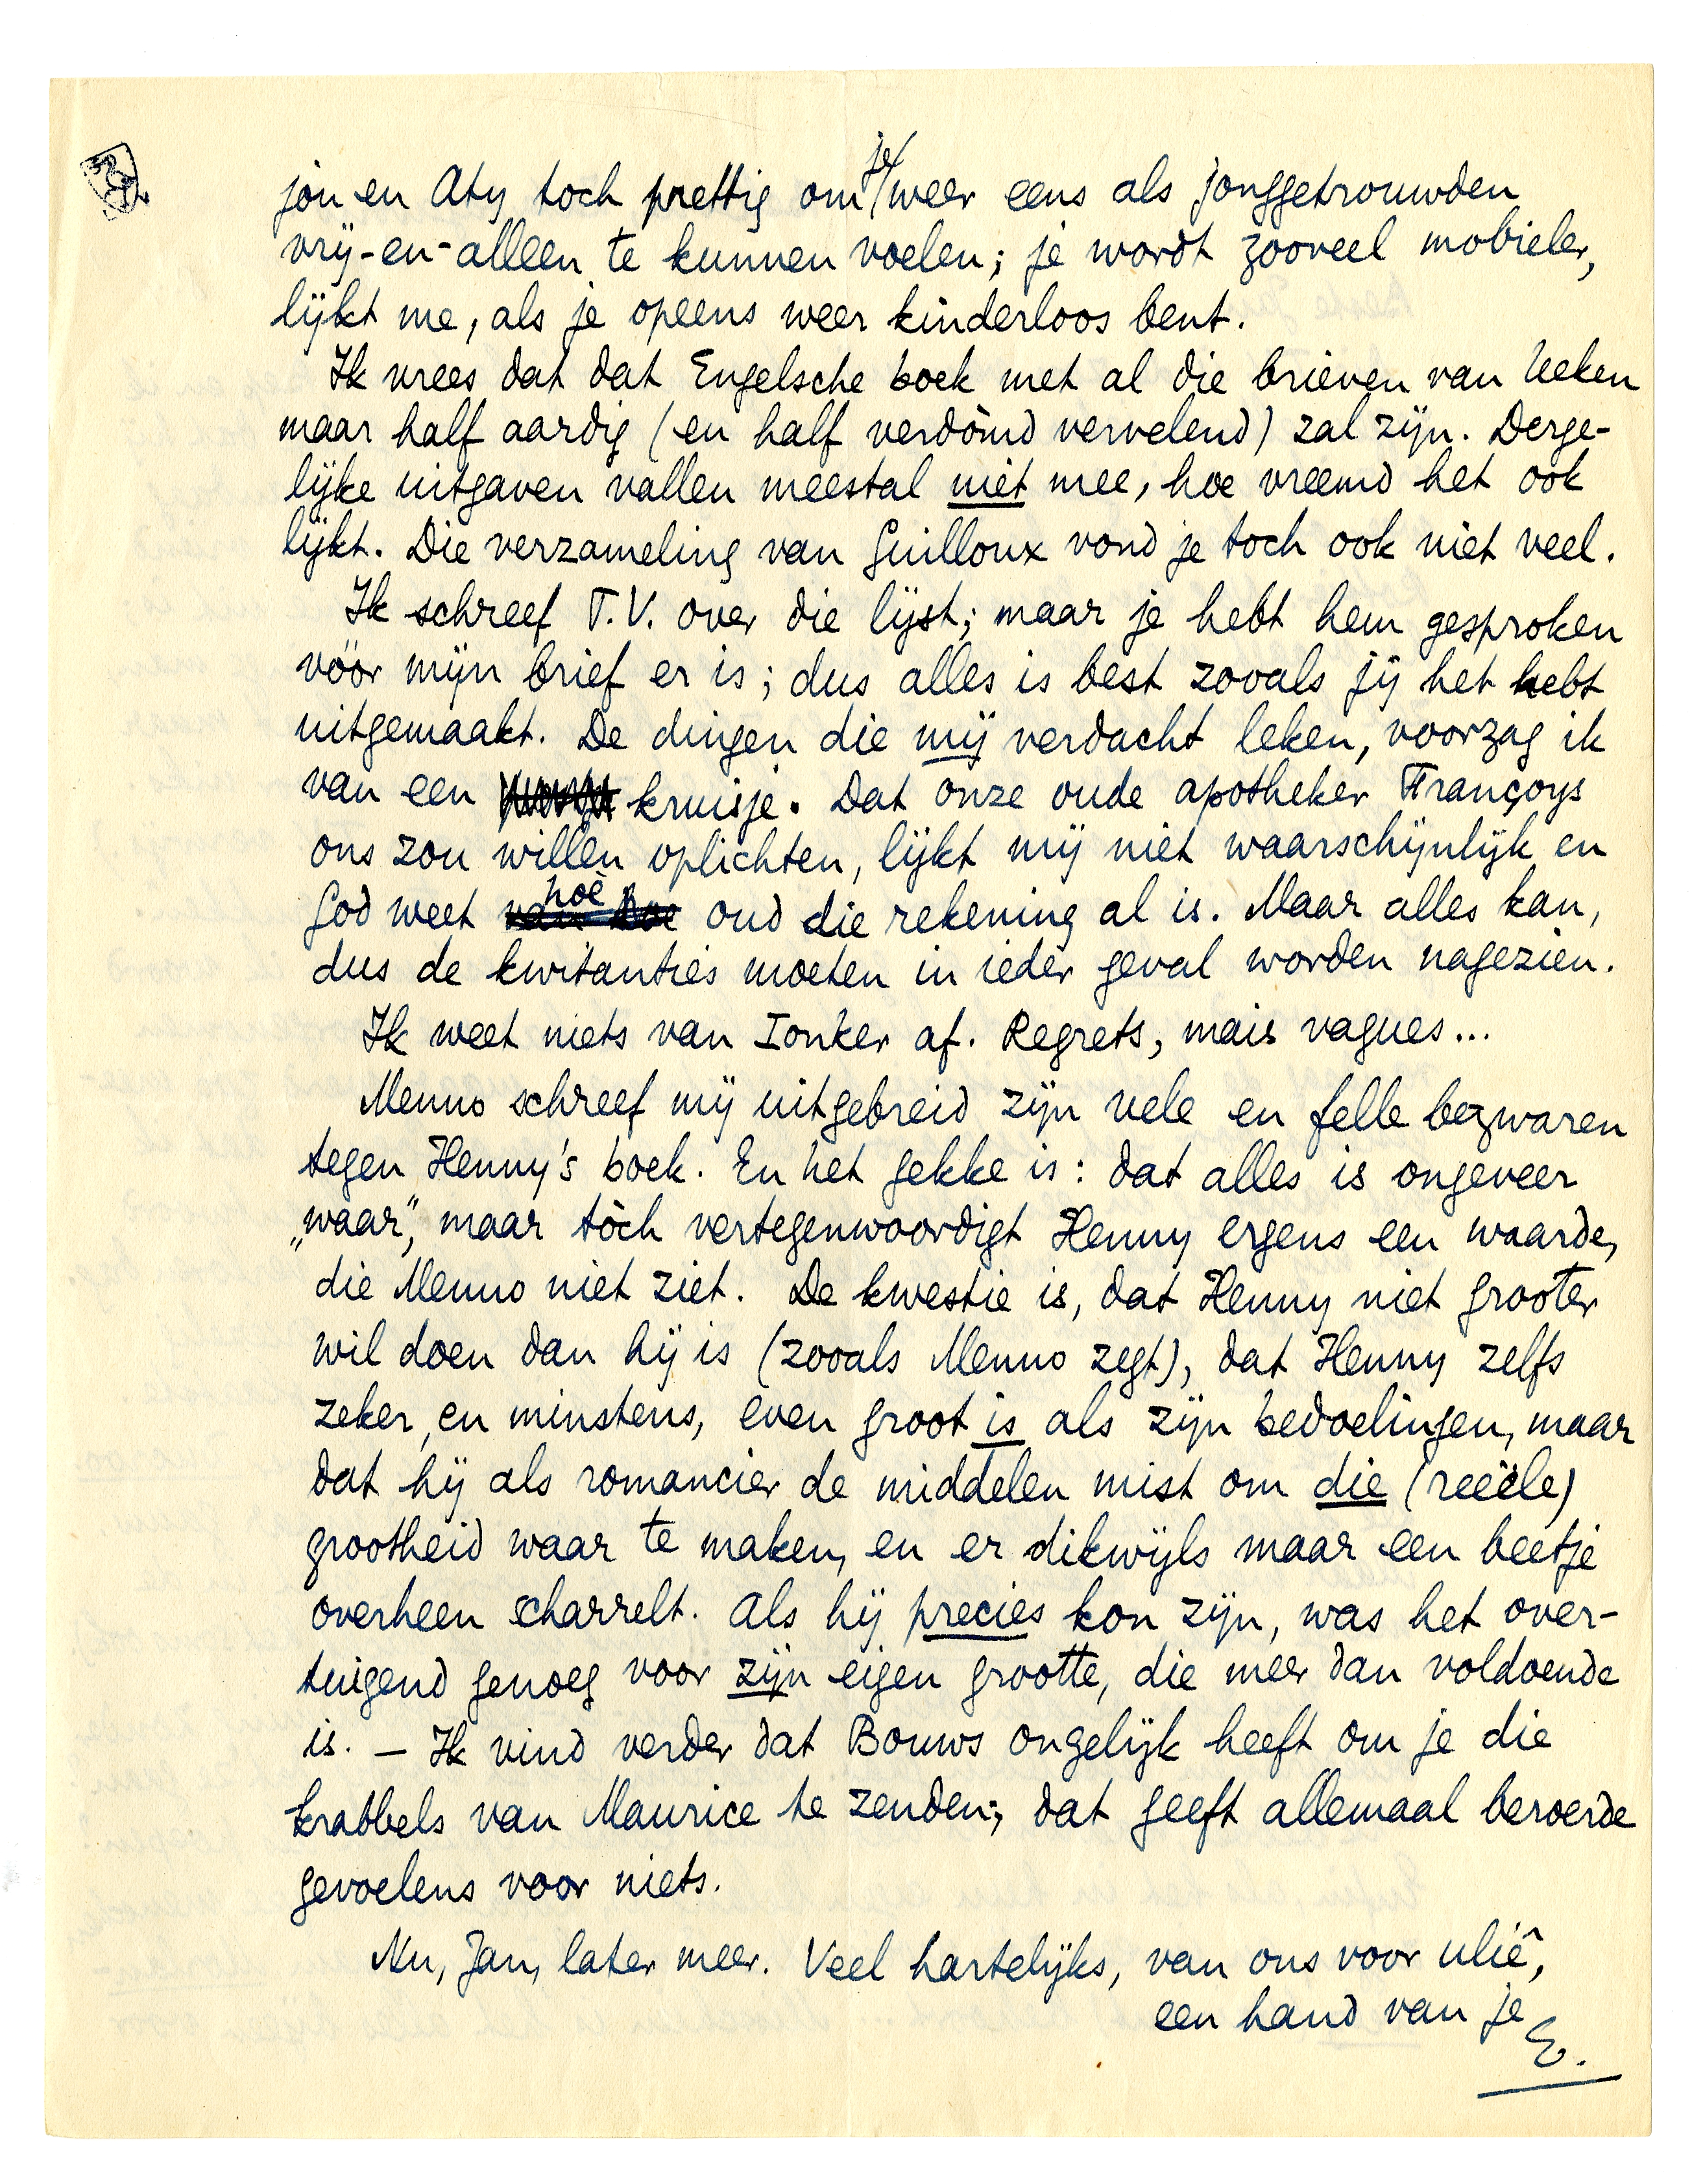 jou en Aty toch prettig om je weer eens als jonggetrouwden
vrij-en-alleen te kunnen voelen; je wordt zooveel mobieler,
lijkt me, als je opeens weer kinderloos bent.
Ik vrees dat dat Engelsche boek met al die brieven van leeken
maar half aardig (en half verdòmd vervelend) zal zijn. Derge-
lijke uitgaven vallen meestal niet mee, hoe vreemd het ook
lijkt. Die verzameling van Guilloux vond je toch ook niet veel.
Ik schreef T.V. over die lijst; maar je hebt hem gesproken
vóór mijn brief er is; dus alles is best zooals jij het hebt
uitgemaakt. De dingen die mij verdacht leken, voorzag ik
van een kruisje. Dat onze oude apotheker Françoys
ons zou willen oplichten, lijkt mij niet waarschijnlijk en
God weet hoe oud die rekening al is. Maar alles kan,
dus de kwitanties moeten in ieder geval worden nagezien.
Ik weet niets van Ionker af. Regrets, mais vagues...
Menno schreef mij uitgebreid zijn vele en felle bezwaren
tegen Henny's boek. En het gekke is: dat alles is ongeveer
„waar”, maar tòch vertegenwoordigt Henny ergens een waarde,
die Menno niet ziet. De kwestie is, dat Henny niet grooter
wil doen dan hij is (zooals Menno zegt), dat Henny zelfs
zeker, en minstens, even groot is als zijn bedoelingen, maar
dat hij als romancier de middelen mist om die (reëele)
grootheid waar te maken, en er dikwijls maar een beetje
overheen scharrelt. Als hij precies kon zijn, was het over-
tuigend genoeg voor zijn eigen grootte, die meer dan voldoende
is. – Ik vind verder dat Bouws ongelijk heeft om je die
krabbels van Maurice te zenden; dat geeft allemaal beroerde
gevoelens voor niets.
Nu, Jan, later meer. Veel hartelijks, van ons voor ulië,
een hand van je
E.